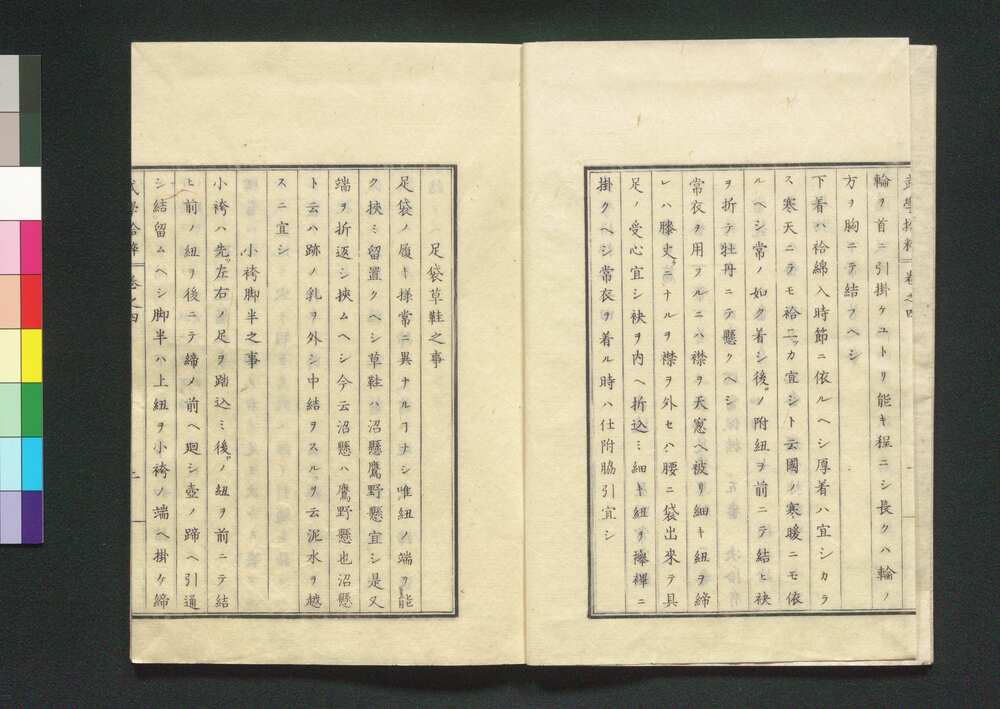 輪ヲ首ニ引掛ケユトリ能キ程ニシ長クハ輪ノ
方ヲ胸ニテ結フヘシ
下着ハ袷綿入時節ニ依ルヘシ厚着ハ宜シカラ
ス寒天ニテモ袷二ツカ宜シト云國ノ寒暖ニモ依
ルヘシ常ノ如ク着シ後ノ附紐ヲ前ニテ結ヒ裌
ヲ折テ牡丹ニテ懸クヘシ
常衣ヲ用フルニハ襟ヲ天窓ヘ被リ細キ紐ヲ締
レハ膝丈ニナルヲ襟ヲ外セハ腰ニ袋出來テ具
足ノ受心宜シ裌ヲ内ヘ折込ミ細キ紐ヲ襷襌ニ
掛クヘシ常衣ヲ着ル時ハ仕附脇引宜シ
足袋草鞋之事
足袋ノ履キ様常ニ異ナルヿナシ唯紐ノ端ヲ能
ク挾ミ留置クヘシ草鞋ハ沼懸鷹野懸宜シ是又
端ヲ折返シ挾ムヘシ今云沼懸ハ鷹野懸也沼懸
ト云ハ跡ノ乳ヲ外シ中結ヲスルヲ云泥水ヲ越
スニ宜シ
小袴脚半之事
小袴ハ先左右ノ足ヲ踏込ミ後ノ紐ヲ前ニテ結
ヒ前ノ紐ヲ後ニテ締ノ前ヘ廻シ壺ノ蹄ヘ引通
シ結留ムヘシ脚半ハ上紐ヲ小袴ノ端ヘ掛ケ締
卷之四